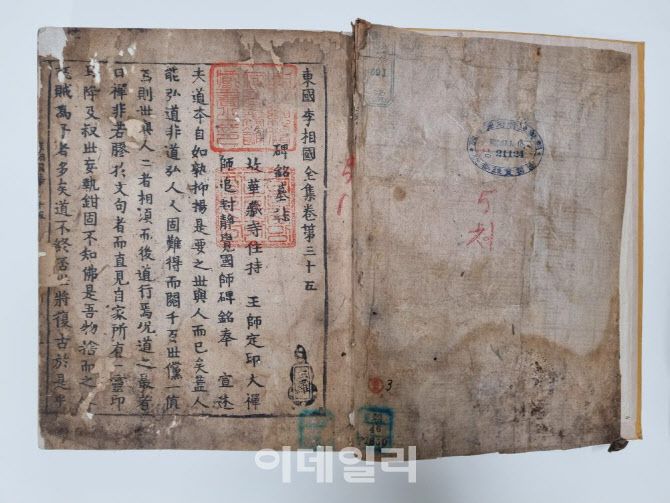 東國李相國全集卷第三十五
碑銘墓誌
故華藏寺住持 王師定印大禪
師追封靜覺國師碑銘奉 宣述
夫道本自如孰抑揚是要之世與人而已矣盖人
能弘道非道弘人人固難得而閱千百世僅一値
焉則世與人二者相須而後道行焉况道之最者
曰禪非若膠於文句者而直見自家所有一靈印
降及叔世妄執鉗固不知佛是吾物捨而之人
賊爲子者多矣道不終否必將復古於是乎
21124
3
이데일리